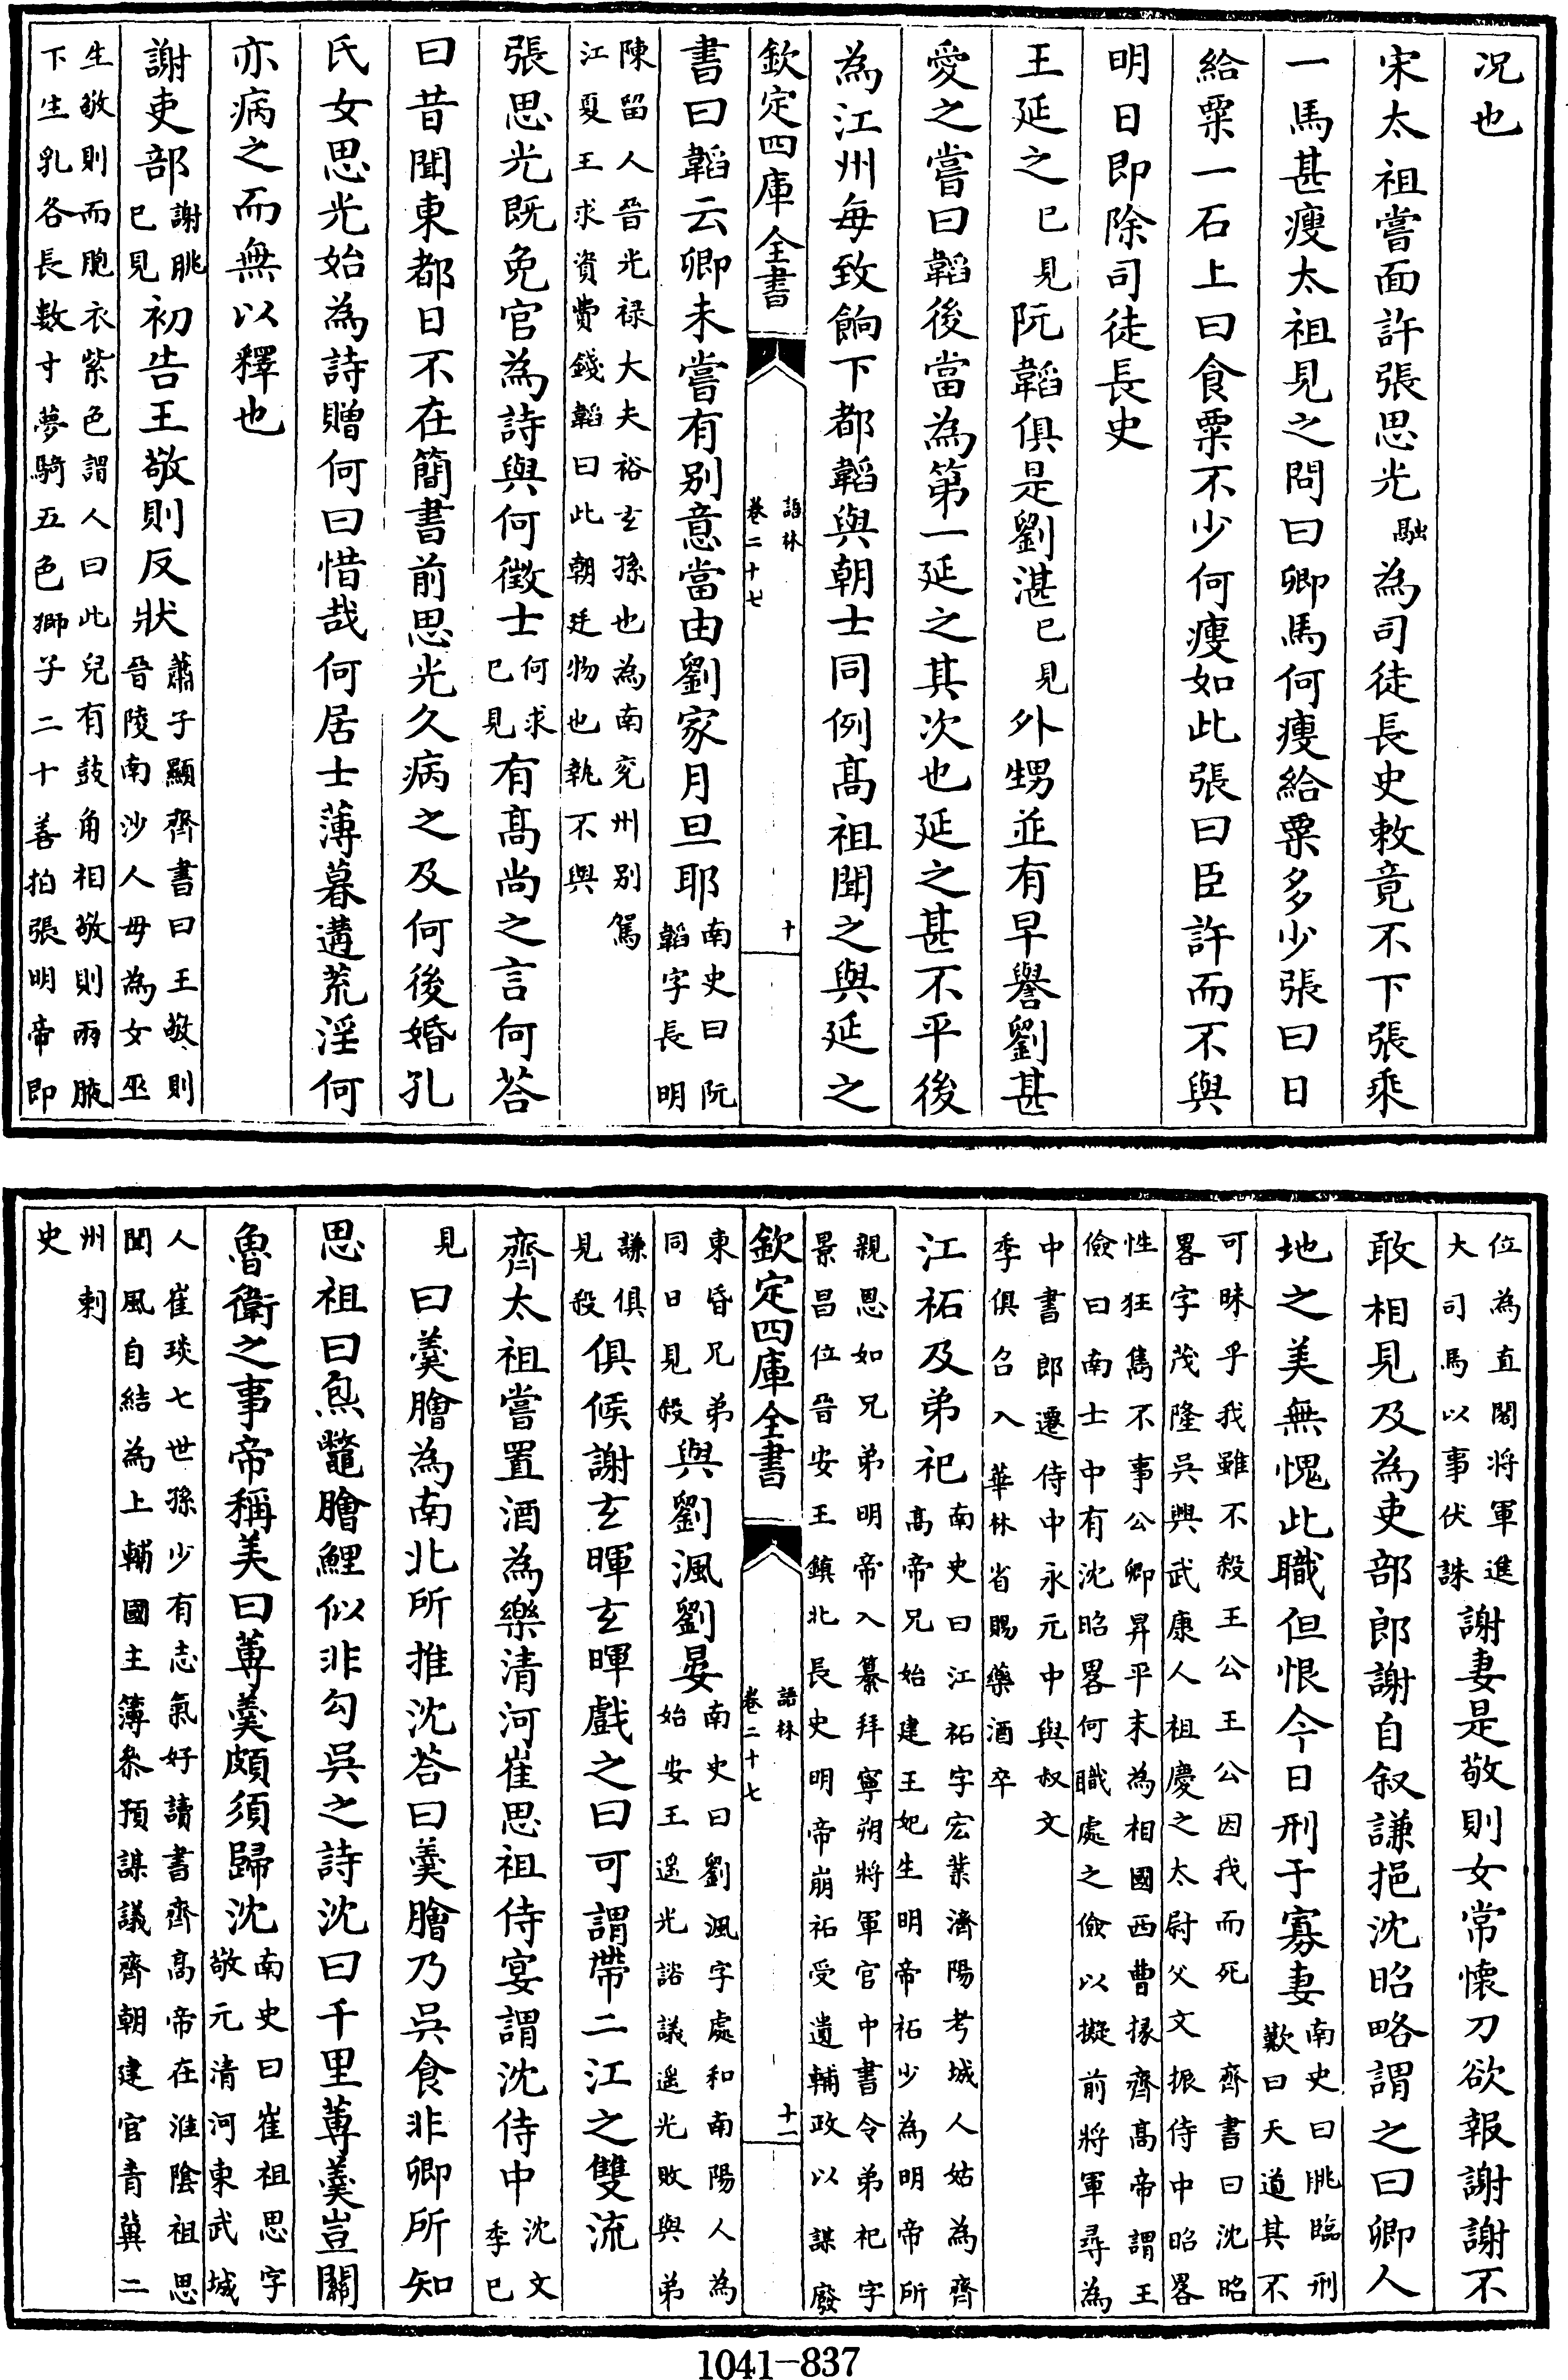 况也
宋太祖嘗面許張思光融為司徒長史敕竟不下張乘
一馬甚瘦太祖見之問曰卿馬何瘦給粟多少張曰日
給粟一石上曰食粟不少何瘦如此張曰臣許而不與
明日即除司徒長史
王延之已見阮韜俱是劉湛已見外甥並有早譽劉甚
愛之嘗曰韜後當為第一延之其次也延之甚不平後
為江州每致餉下都韜與朝士同例髙祖聞之與延之
欽定四庫全書
語林
卷二十七
十
書曰韜云卿未嘗有别意當由劉家月旦耶南史曰阮韜字長明
陳留人晉光禄大夫裕玄孫也為南兖州别駕
江夏王求資費錢韜曰此朝廷物也執不與
張思光既免官為詩與何徵士何求已見有髙尚之言何荅
曰昔聞東都日不在簡書前思光久病之及何後婚孔
氏女思光始為詩贈何曰惜哉何居士薄暮遘荒淫何
亦病之而無以釋也
謝吏部謝朓已見初告王敬則反狀蕭子顯齊書曰王敬則晉陵南沙人毋為女巫
生敬則而胞衣紫色謂人曰此兒有鼓角相敬則兩腋
下生乳各長數寸夢騎五色獅子二十善拍張明帝即
位為直閤將軍進大司馬以事伏誅謝妻是敬則女常懷刀欲報謝謝不
敢相見及為吏部郎謝自叙謙挹沈昭略謂之曰卿人
地之美無愧此職但恨今日刑于寡妻南史曰朓臨刑歎曰天道其不
可昧乎我雖不殺王公王公因我而死 齊書曰沈昭
畧字茂隆吳興武康人祖慶之太尉父文振侍中昭畧
性狂雋不事公卿昇平末為相國西曹掾齊髙帝謂王
儉曰南士中有沈昭畧何職處之儉以擬前將軍尋為
中書郎遷侍中永元中與叔文
季俱召入華林省賜藥酒卒
江祏及弟祀南史曰江祏字宏業濟陽考城人姑為齊髙帝兄始建王妃生明帝祏少為明帝所
親恩如兄弟明帝入纂拜寧朔將軍官中書令弟祀字
景昌位晉安王鎮北長史明帝崩祏受遺輔政以謀廢
欽定四庫全書
語林
卷二十七
十一
東昏兄弟同日見殺與劉渢劉晏南史曰劉渢字處和南陽人為始安王遥光諮議遥光敗與弟
謙俱見殺俱候謝玄暉玄暉戲之曰可謂帶二江之雙流
齊太祖嘗置酒為樂清河崔思祖侍宴謂沈侍中沈文季已
見曰羮膾為南北所推沈荅曰羮膾乃吳食非卿所知
思祖曰炰鼈膾鯉似非勾吳之詩沈曰千里蓴羮豈關
魯衛之事帝稱美曰蓴羮頗須歸沈南史曰崔祖思字敬元清河東武城
人崔琰七世孫少有志氣好讀書齊髙帝在淮陰祖思
聞風自結為上輔國主簿叅預謀議齊朝建官青冀二
州刺
史
1041-837